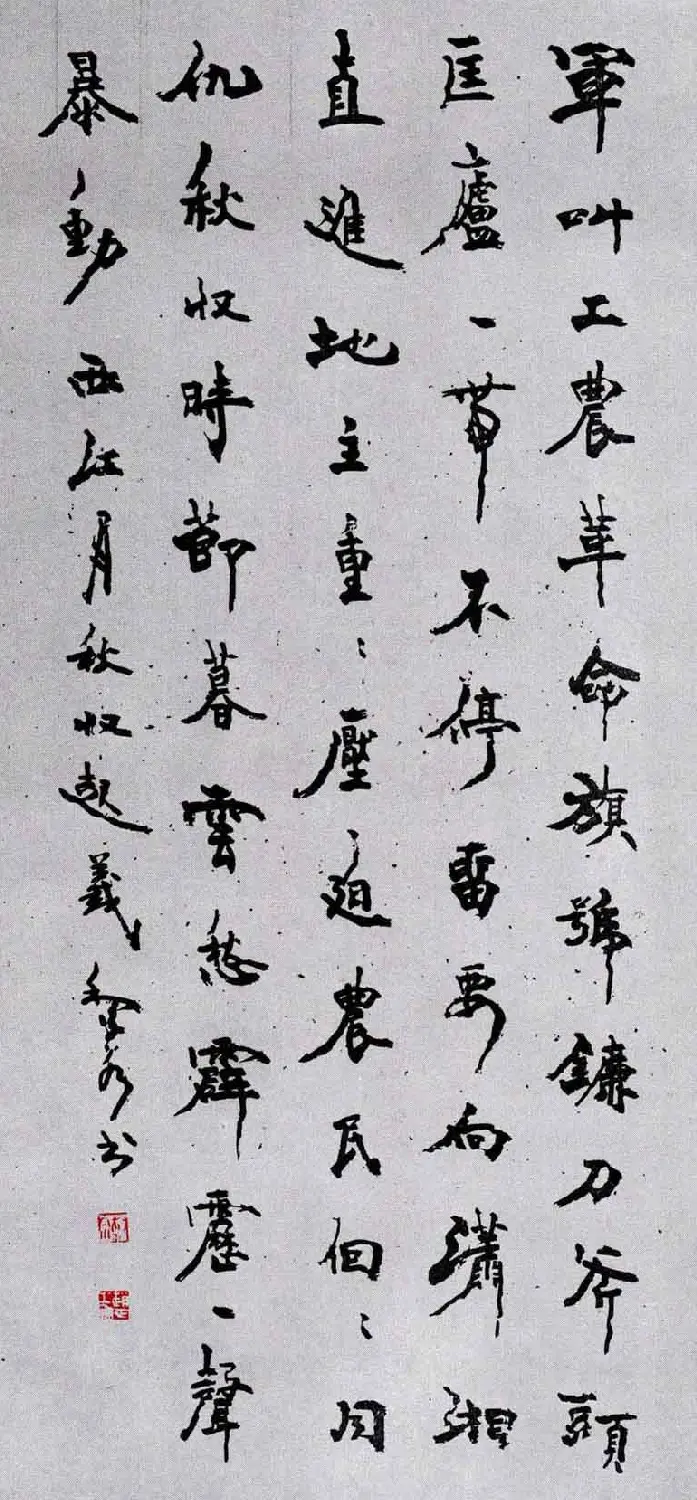 軍叫工農革命旗號鐮刀斧頭
匡廬一帶不停留要向瀟湘
直進地主重〻壓迫農民個〻同
仇秋收時節暮雲愁霹靂一聲
暴動 西江月秋收起義 书